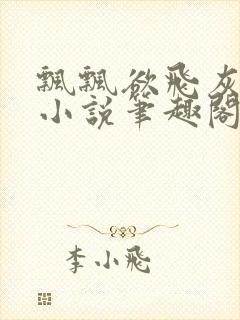 飄飄欲飛灰
小說筆趣閣
李小飛